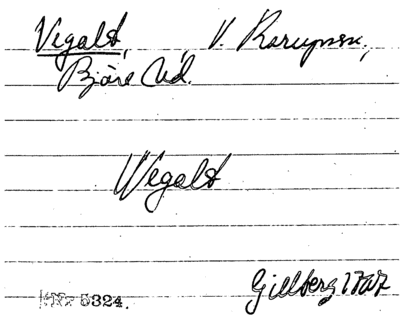 Vegalt, V. Karupssn.,
Bjäre hd.
Wegalt
Gillberg 1767
Nr 5324.